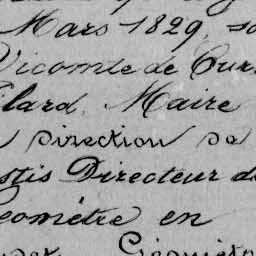 Mars 1829, so
Vicomte de Cur
lard, Maire
Direction de
stis Directeur d
eomètre en